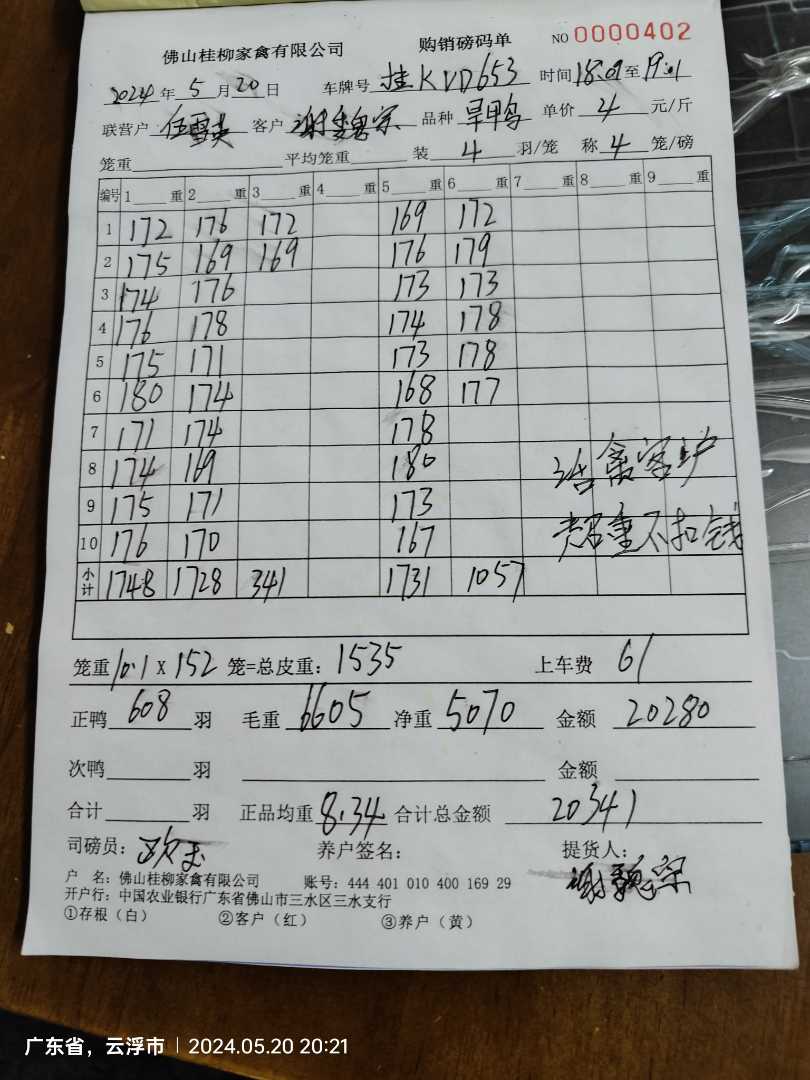 佛山桂柳家禽有限公司 购销磅码单 NO 0000402
2024 年 5 月 20 日 车牌号 桂KVD653 时间 18:09 至 19:01
联营户 伍雪英 客户 谢魏宗 品种 旱甲鸟 单价 4 元/斤
笼重 平均笼重 装 4 羽/笼 称 4 笼/磅
编号 1 重 2 重 3 重 4 重 5 重 6 重 7 重 8 重 9 重
1 172 176 172 169 172
2 175 169 169 176 179
3 174 176 173 173
4 176 178 174 178
5 175 171 173 178
6 180 174 168 177
7 171 174 178
8 174 169 180 活禽客户
9 175 171 173
10 176 170 167 超重不扣钱
小计 1748 1728 341 1731 1057
笼重 10.1 X 152 笼=总皮重: 1535 上车费 61
正鸭 608 羽 毛重 6605 净重 5070 金额 20280
次鸭 羽 金额
合计 羽 正品均重 8.34 合计总金额 20341
司磅员: 养户签名: 提货人: 谢魏宗
户 名: 佛山桂柳家禽有限公司 账号: 444 401 010 400 169 29
开户行: 中国农业银行广东省佛山市三水区三水支行
①存根(白) ②客户(红) ③养户(黄)
广东省，云浮市 2024.05.20 20:21